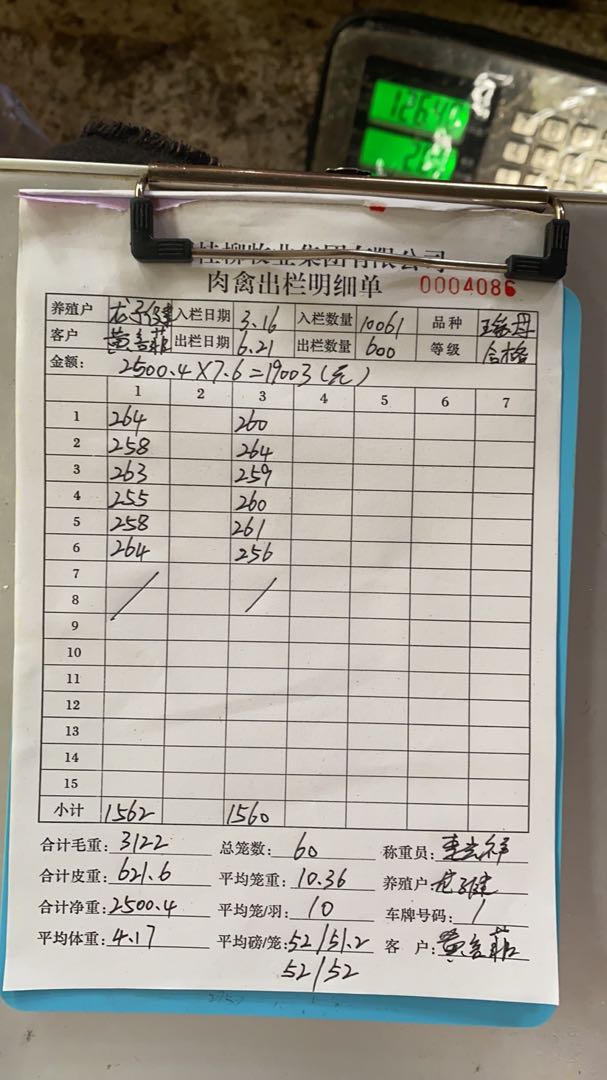 桂柳牧业集团有限公司
肉禽出栏明细单 0004086
养殖户 入栏日期 3.16 入栏数量 10061 品种
客户 出栏日期 6.21 出栏数量 600 等级 合格
金额: 2500.4×7.6=19003(元)
1 2 3 4 5 6 7
1 264 260
2 258 264
3 263 259
4 255 260
5 258 261
6 264 256
7
8
9
10
11
12
13
14
15
小计 1562 1560
合计毛重: 3122 总笼数: 60 称重员:
合计皮重: 621.6 平均笼重: 10.36 养殖户
合计净重: 2500.4 平均笼/羽: 10 车牌号码: /
平均体重: 4.17 平均磅/笼: 52/51.2 客 户:
52/52